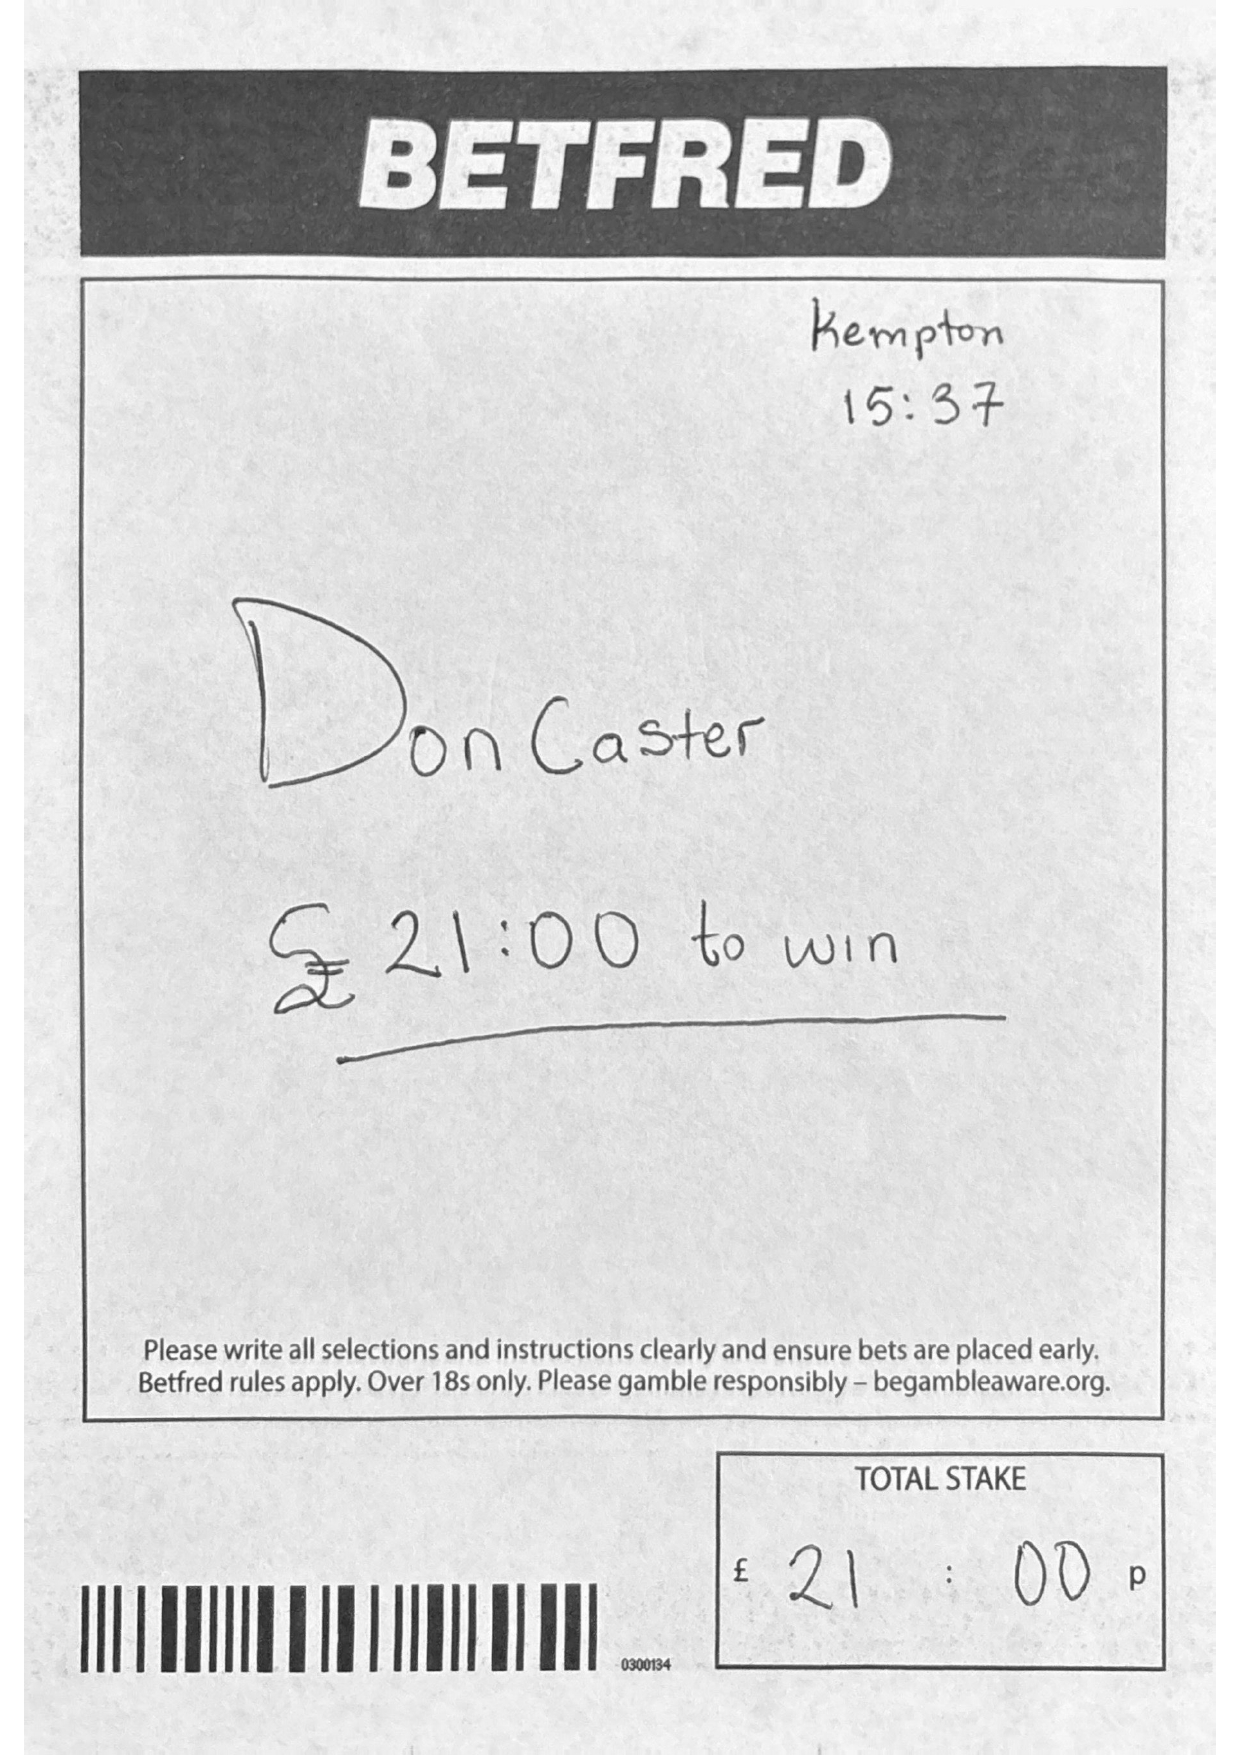 BETFRED
Kempton
15:37
Don Caster
£21:00 to win
Please write all selections and instructions clearly and ensure bets are placed early.
Betfred rules apply. Over 18s only. Please gamble responsibly – begambleaware.org.
TOTAL STAKE
£ 21 : 00 p
0300134